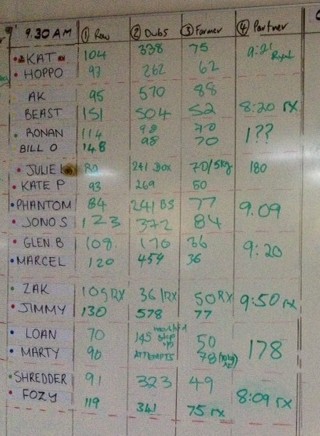 9.30 AM ① Row ② Dubs ③ Farmer ④ Partner
KAT 104 338 75 9:21
HOPPO 97 262 62
AK 95 570 88 8:20 rx
BEAST 151 504 52
RONAN 114 98 70 1??
BILL O 148 98 70
JULIE 241 70/5kg 180
KATE P 93 269 50
PHANTOM 84 241 BS 77 9.09
JONO S 123 372 84
GLEN B 108 170 36 9:20
MARCEL 120 459 36
ZAK 109 RX 361 RX 50 RX 9:50 rx
JIMMY 130 578 77
LOAN 70 145 50 178
MARTY 90 ATTEMPTS 78
SHREDDER 91 323 49 8:09 rx
FOZY 119 341 75 rx